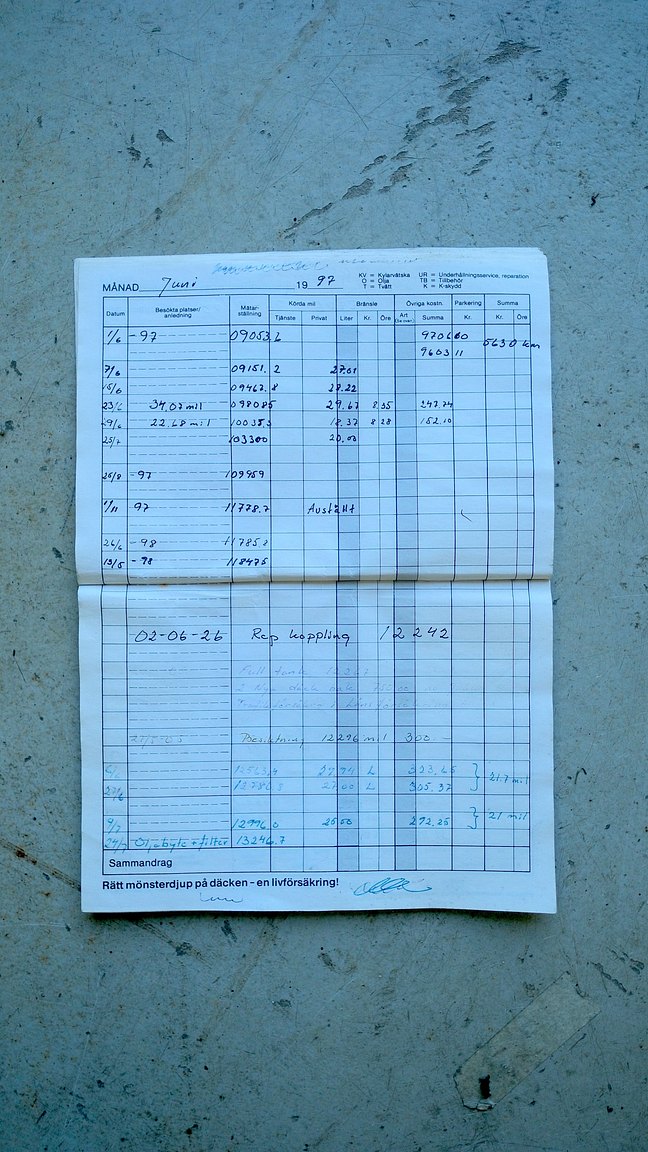 MÅNAD Juni 19 97
KV = Kylarvätska UR = Underhållningsservice, reparation
O = Olja TB = Tillbehör
T = Tvätt K = K-skydd
Datum Besökta platser/ anledning Mätar- ställning Körda mil Bränsle Övriga kostn. Parkering Summa
Tjänste Privat Liter Kr. Öre Art Summa Kr. Kr. Öre
1/6 -97 09053.2 970600 5630 km
9603 11
7/6 09151.2 27.01
15/6 09467.8 28.22
23/6 34.07 mil 098085 29.67 8.35 247.74
29/6 22.68 mil 100353 18.37 8 28 152.10
25/7 103300 20.00
26/8 -97 109959
1/11 97 11778.7 Avställt
26/6 -98 11785
13/5 -98 118475
02-06-26 Rep koppling 12242
Full tank
2 Nya däck bak
Besiktning 12296 mil 300.-
27.94 L 323.45 21.7 mil
27.00 L 305.37
9/7 12996.0 26.00 272.25 21 mil
24/7 Oljebyte + filter 13246.7
Sammandrag
Rätt mönsterdjup på däcken – en livförsäkring!